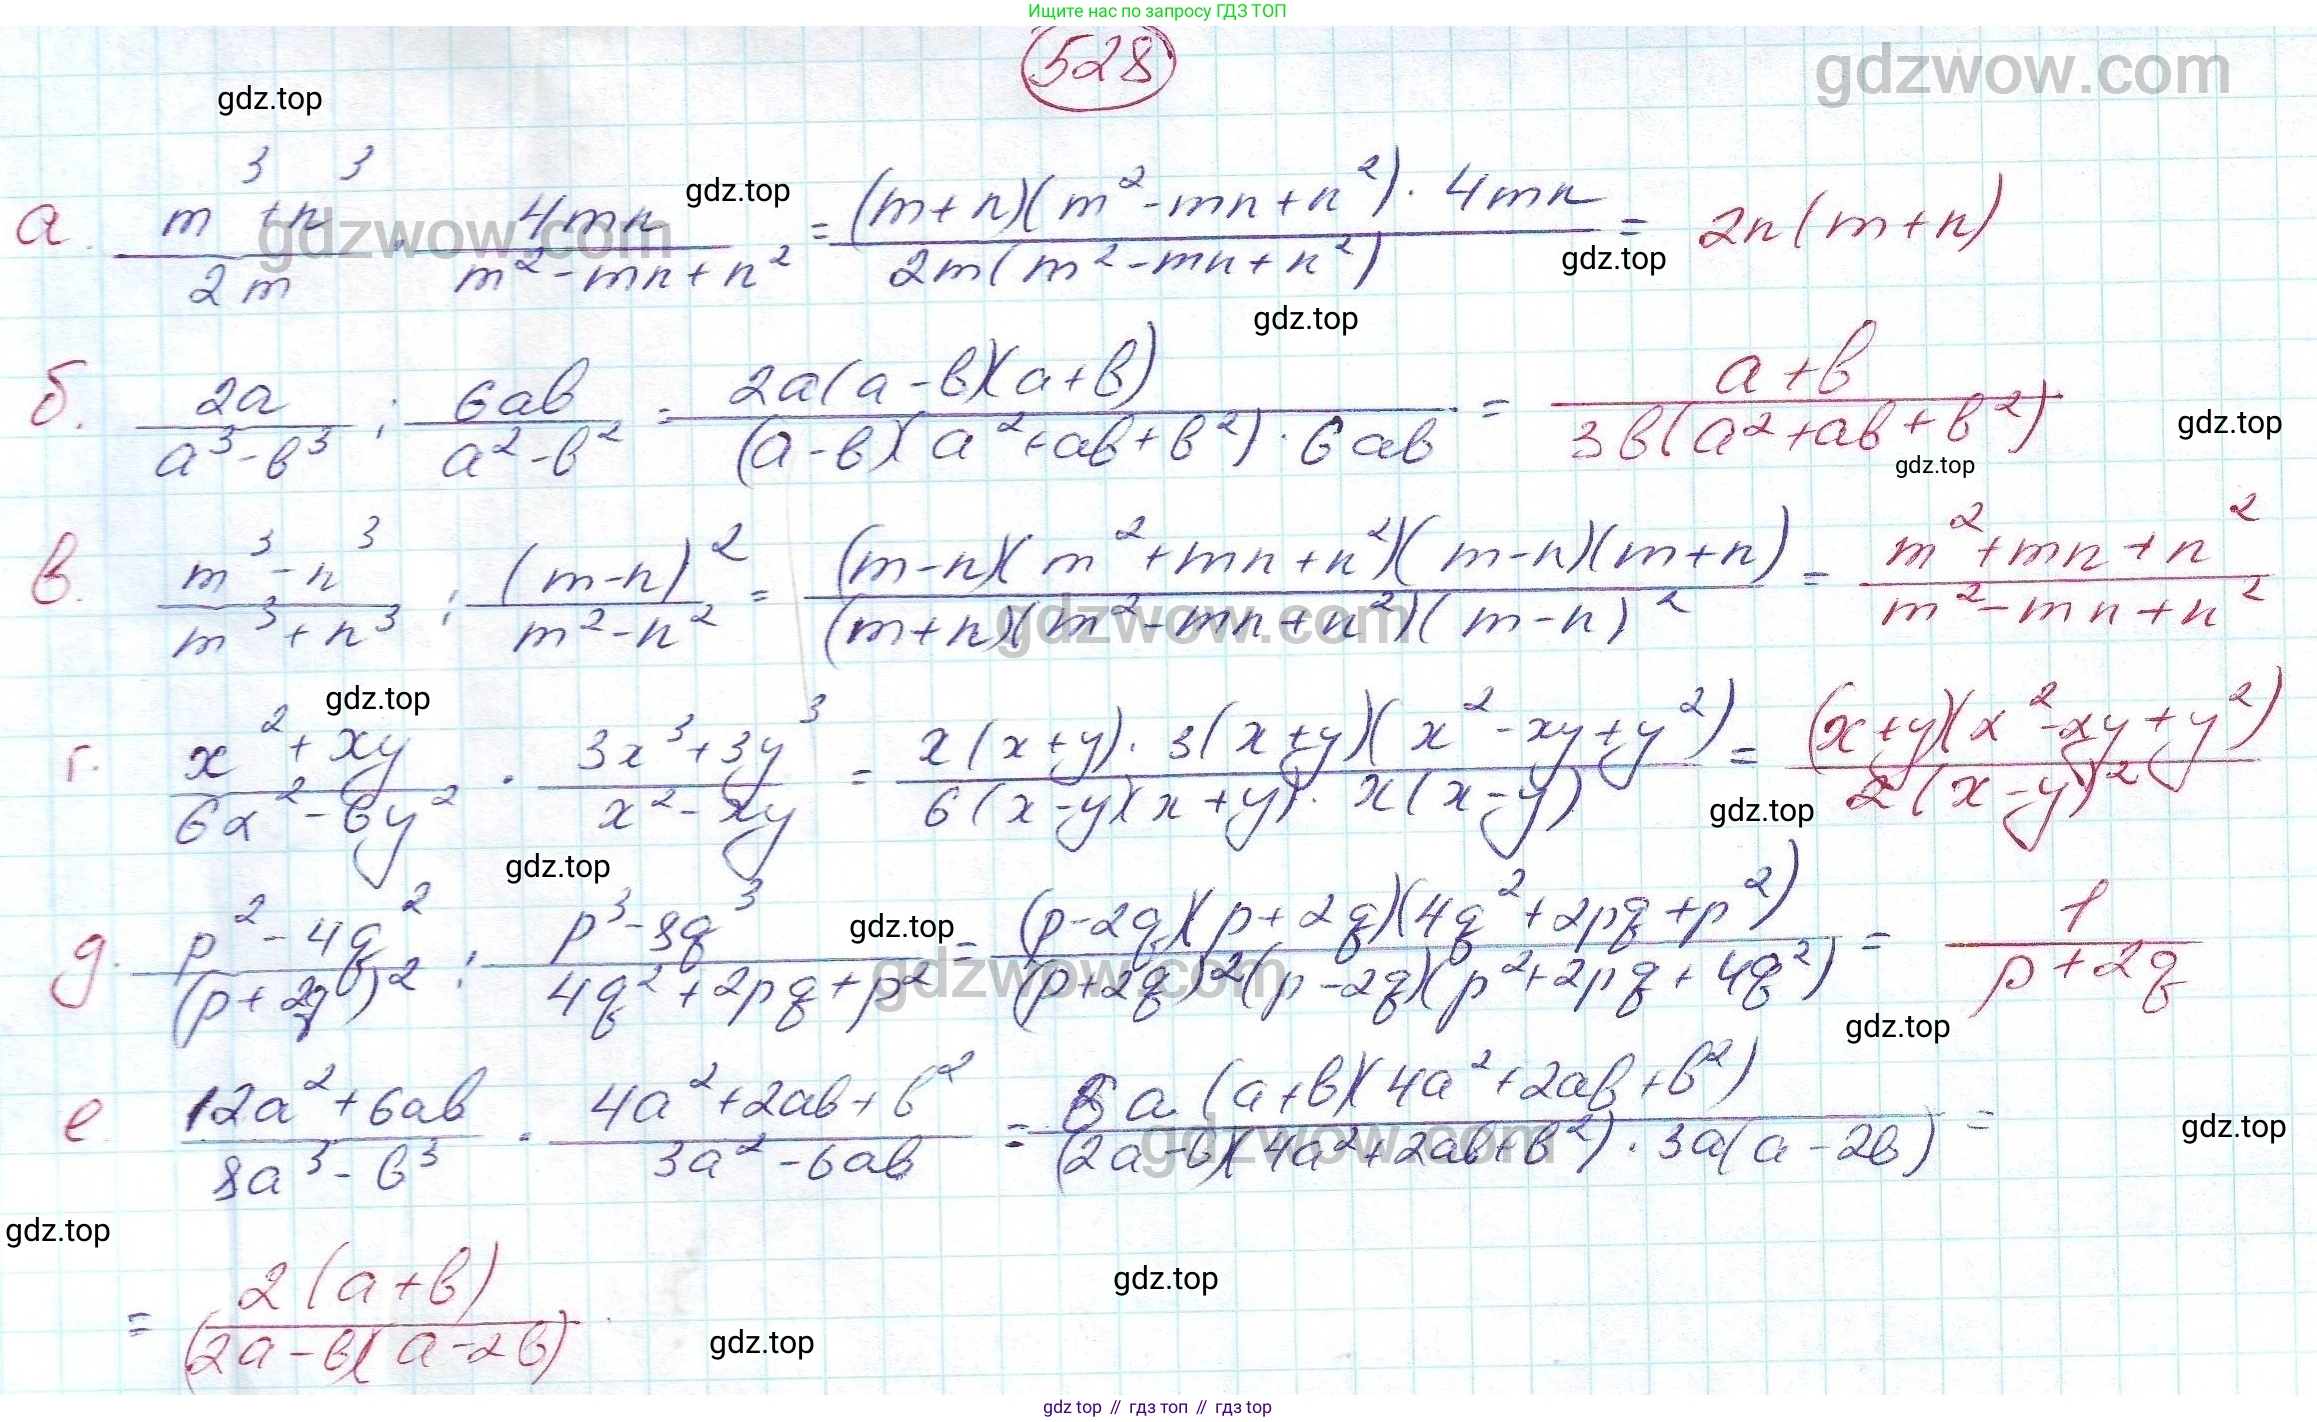 Ищите нас по запросу ГДЗ ТОП
528
gdzwow.com
gdz.top
а. (m³+n³)/(2m) · (4mn)/(m²-mn+n²) = ((m+n)(m²-mn+n²)·4mn)/(2m(m²-mn+n²)) = 2n(m+n)
gdz.top
gdzwow.com
gdz.top
gdz.top
б. (2a)/(a³-b³) : (6ab)/(a²-b²) = (2a(a-b)(a+b))/((a-b)(a²+ab+b²)·6ab) = (a+b)/(3b(a²+ab+b²))
gdz.top
gdz.top
в. (m³-n³)/(m³+n³) : (m-n)²/(m²-n²) = ((m-n)(m²+mn+n²)(m-n)(m+n))/((m+n)(m²-mn+n²)(m-n)²) = (m²+mn+n²)/(m²-mn+n²)
gdzwow.com
gdz.top
г. (x²+xy)/(6x²-6y²) · (3x³+3y³)/(x²-xy) = (x(x+y)·3(x+y)(x²-xy+y²))/(6(x-y)(x+y)·x(x-y)) = ((x+y)(x²-xy+y²))/(2(x-y)²)
gdz.top
gdz.top
gdz.top
д. (p²-4q²)/(p+2q)² : (p³-8q³)/(4q²+2pq+p²) = ((p-2q)(p+2q)(4q²+2pq+p²))/((p+2q)²(p-2q)(p²+2pq+4q²)) = 1/(p+2q)
gdzwow.com
gdz.top
е. (12a²+6ab)/(8a³-b³) · (4a²+2ab+b²)/(3a²-6ab) = (6a(a+b)(4a²+2ab+b²))/((2a-b)(4a²+2ab+b²)·3a(a-2b)) =
gdzwow.com
gdz.top
gdz.top
= (2(a+b))/((2a-b)(a-2b)).
gdz.top
gdz.top
gdz top // гдз топ // гдз top